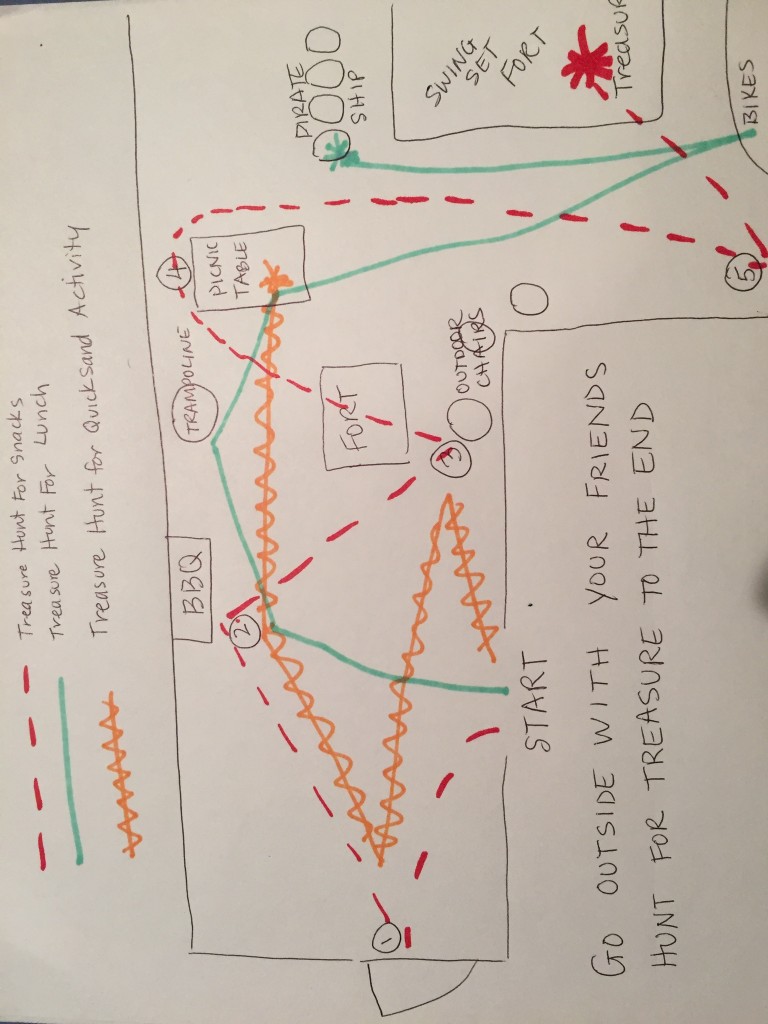 Treasure Hunt For Snacks
Treasure Hunt For Lunch
Treasure Hunt for Quicksand Activity
BBQ
TRAMPOLINE
4
PICNIC
TABLE
PIRATE
SHIP
SWING
SET
FORT
Treasure
BIKES
1
2
FORT
3
OUTDOOR
CHAIRS
5
START
GO OUTSIDE WITH YOUR FRIENDS
HUNT FOR TREASURE TO THE END